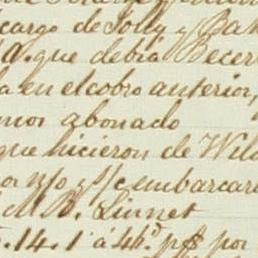 cargo de Tolly y Bak
que debia Becer
a en el cobro anterior,
mos abonado
que hicieron de Wil
or n/o y s/c embarcar
M B. Linnet
.14.1 á 46d. p$ por